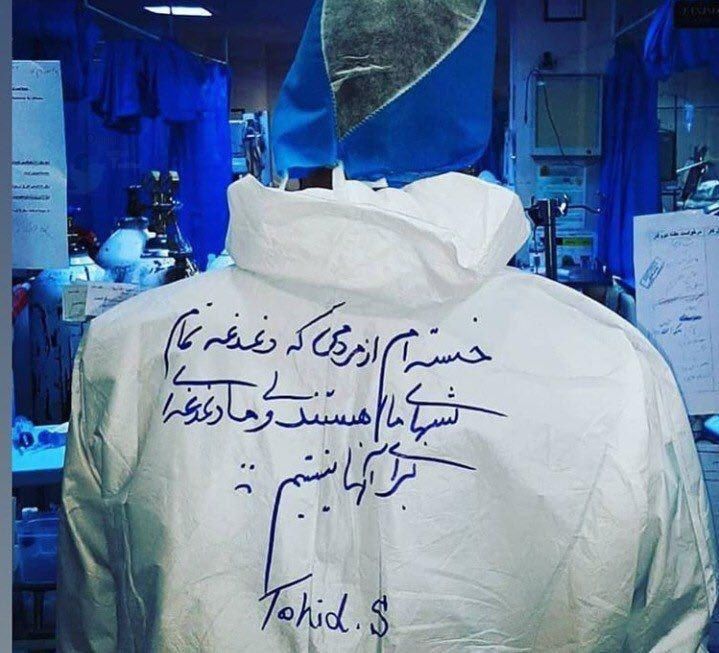 خسته ام از مردمی که دغدغه تمام
شبهای ما هستند ولی ما دغدغه ای
برای آنها نیستیم
Tohid.S